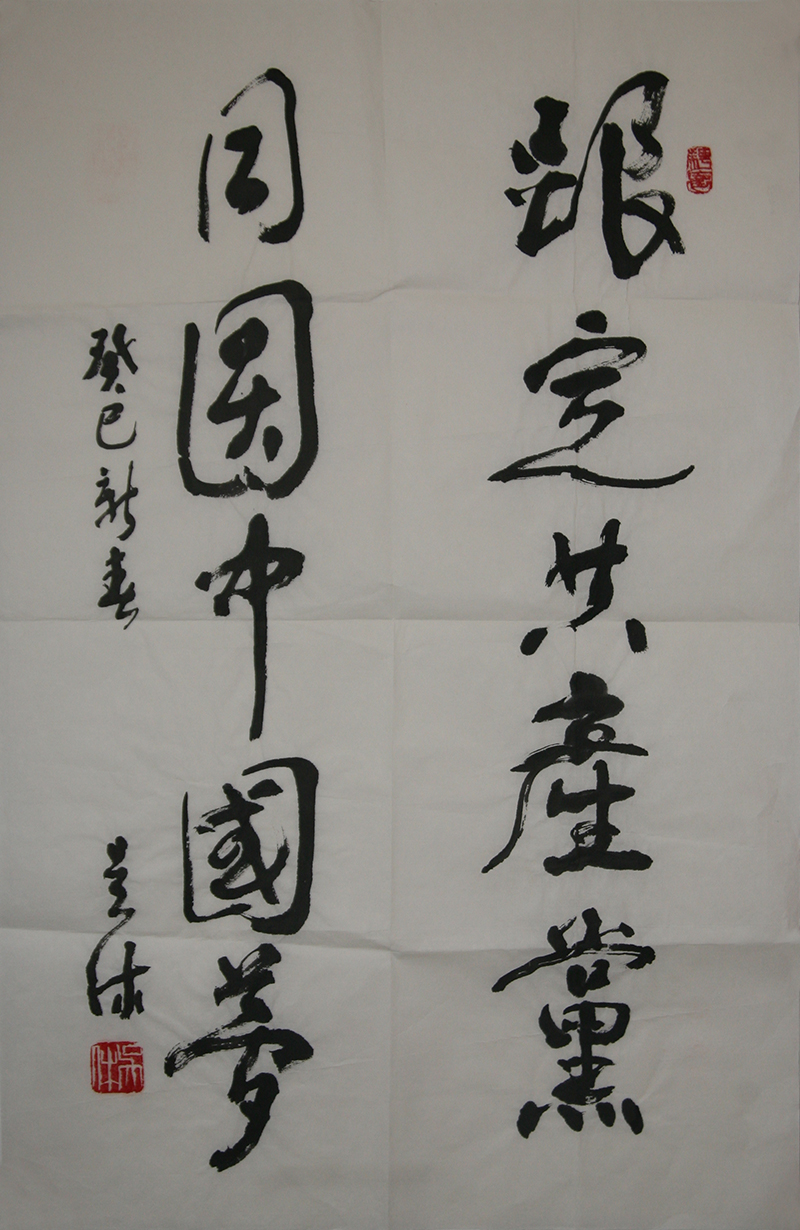 跟定共產黨
同圓中國夢
癸巳新春
吴